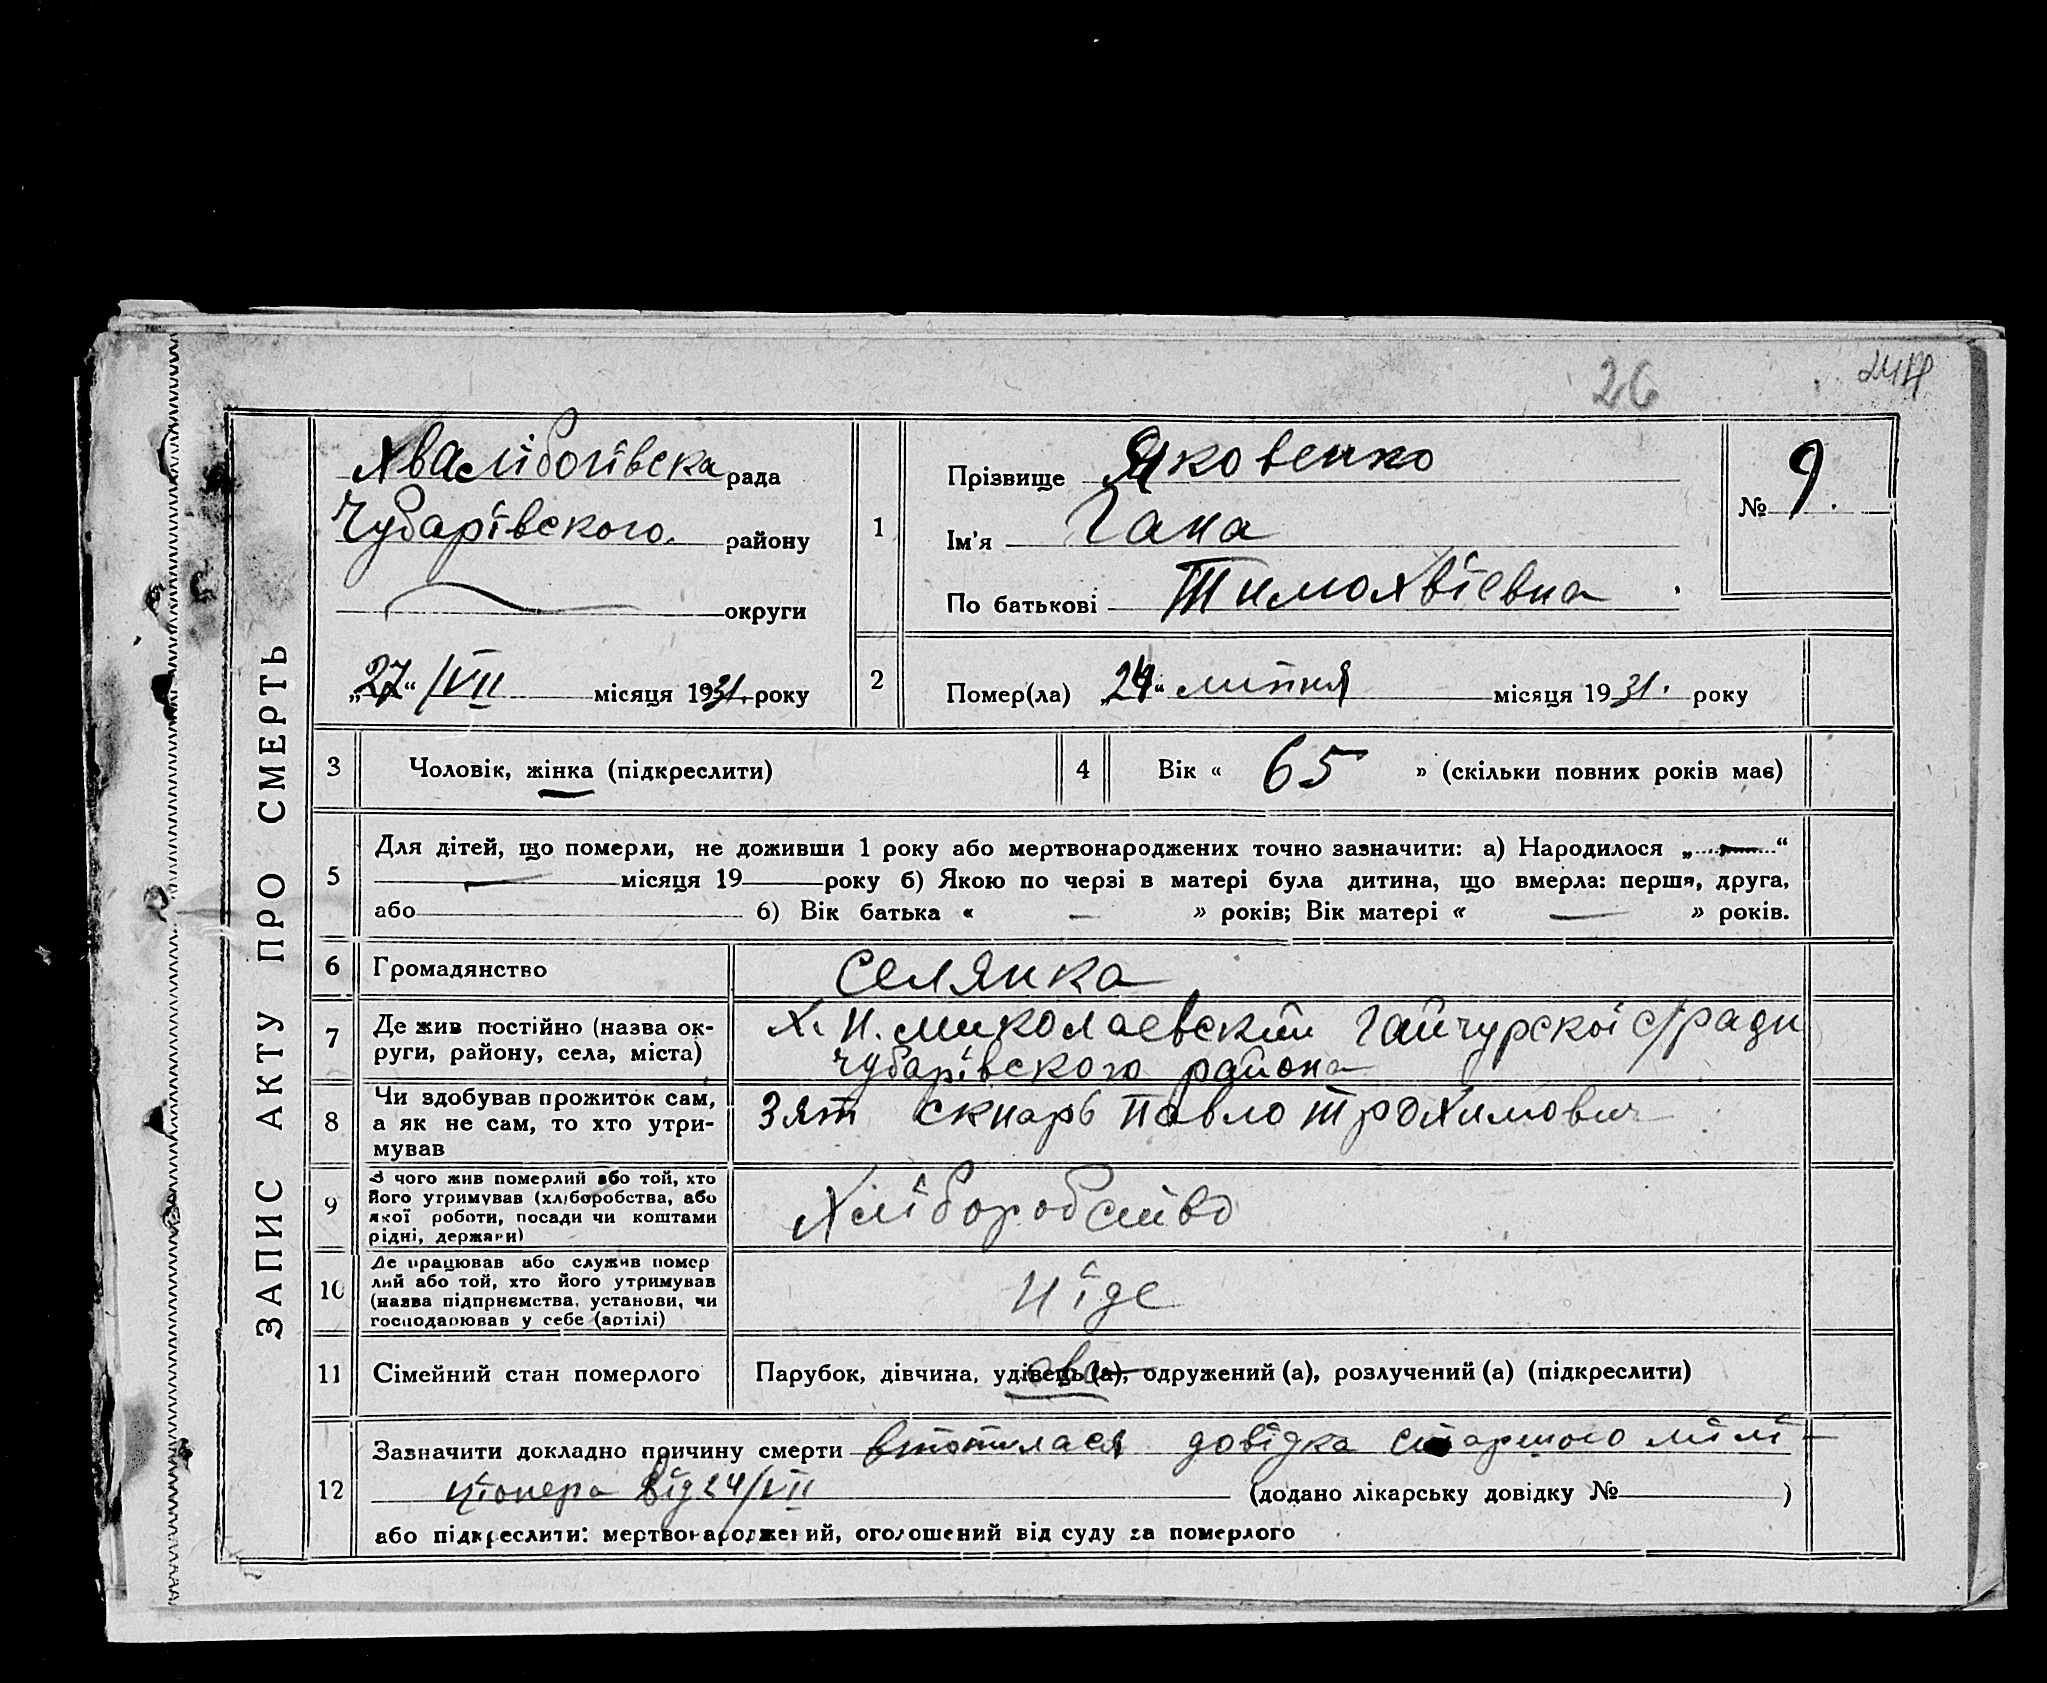 26
ЗАПИС АКТУ ПРО СМЕРТЬ
Хвалібогівска рада
Чубарівского району
округи
„27“ /VII місяця 1931. року
1
Прізвище Яковенко
Ім'я Гана
По батькові Тимохвієвна
№ 9.
2
Помер(ла) „24“ липня місяця 1931. року
3 Чоловік, жінка (підкреслити)
4 Вік « 65 » (скільки повних років має)
5
Для дітей, що померли, не доживши 1 року або мертвонароджених точно зазначити: а) Народилося „ “
місяця 19 року б) Якою по черзі в матері була дитина, що вмерла: перша, друга,
або 6) Вік батька « — » років; Вік матері « — » років.
6 Громадянство Селянка
7 Де жив постійно (назва ок-
руги, району, села, міста)
Х. Н. Миколаевский Гайчурскої с/ради
Чубарівского района
8 Чи здобував прожиток сам,
а як не сам, то хто утри-
мував
Зят Скнарь Павло Трохимович
9 З чого жив померлий або той, хто
його утримував (хліборобства, або
якої роботи, посади чи коштами
рідні, держави)
Хліборобство
10 Де працював або служив помер
лий або той, хто його утримував
(назва підприємства, установи, чи
господарював у себе (артілі)
Ніде
11 Сімейний стан померлого Парубок, дівчина, удівець (а), одружений (а), розлучений (а) (підкреслити)
12
Зазначити докладно причину смерти втопилася довідка старшого мілі-
ціонера від 24/VII (додано лікарську довідку № )
або підкреслити: мертвонароджений, оголошений від суду за померлого